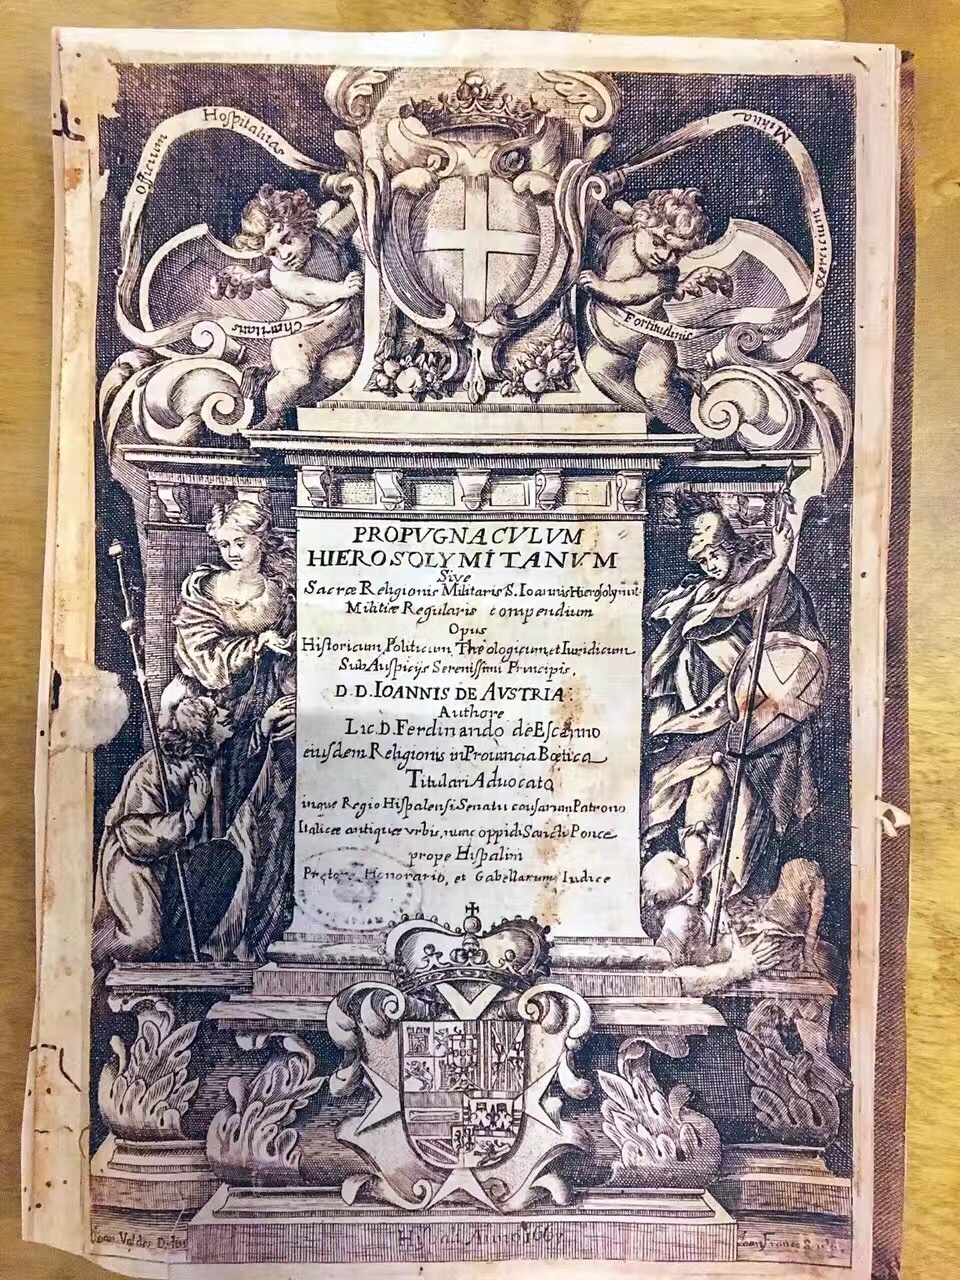 Officium
Hospitalitatis
Charitatis
Militia
Exercitium
Fortitudinis
PROPVGNACVLVM
HIEROSOLYMITANVM
Sive
Sacræ Religionis Militaris S. Ioannis Hierosolymit.
Militiæ Regularis compendium
Opus
Historicum, Politicum, Theologicum, et Iuridicum
Sub Auspicijs Serenissimi Principis,
D. D. IOANNIS DE AVSTRIA.
Authore
Lic. D. Ferdinando de Escaño
eiusdem Religionis in Prouincia Bœtica
Titulari Aduocato
inque Regio Hispalensi Senatu causarum Patrono
Italicæ antiquæ vrbis, nunc oppidi Sancti Ponce
prope Hispalim
Prętore Honorario, et Gabellarum Iudice
Anno 166